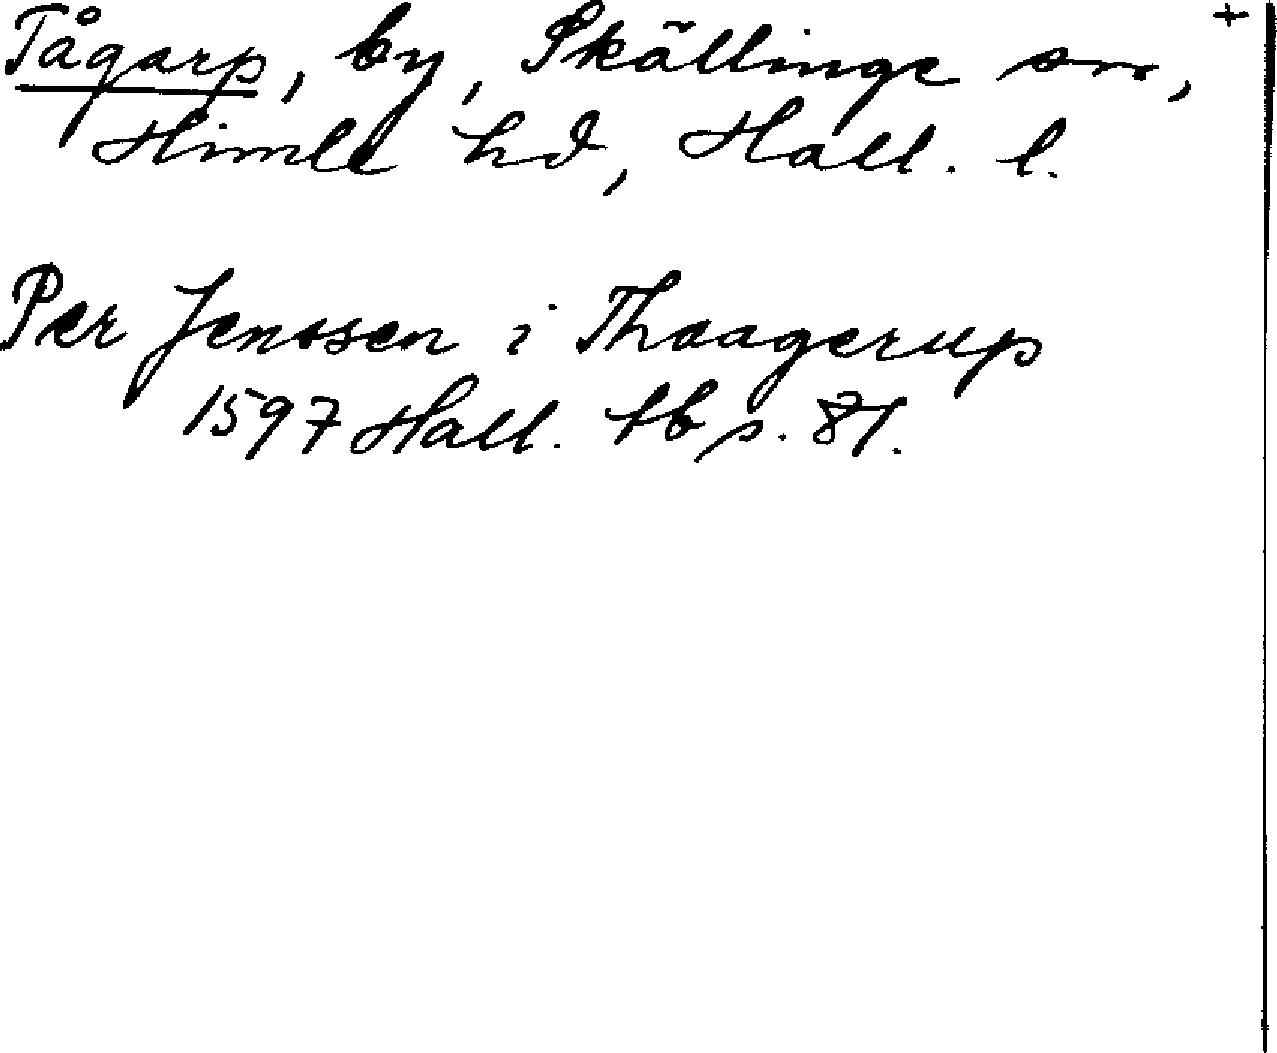 Tågarp, by, Skällinge sn, +
Himle hd, Hall. l.
Per Jenssen i Thaagerup
1597 Hall. tb s. 81.